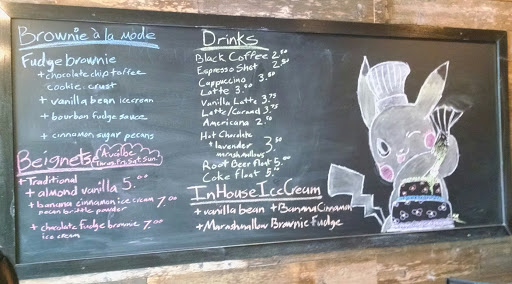 Brownie à la mode
Fudge brownie
+ chocolate chip toffee
cookie crust
+ vanilla bean icecream
+ bourbon fudge sauce
+ cinnamon sugar pecans
Beignets
+ Traditional
+ almond vanilla 5.00
+ banana cinnamon ice cream 7.00
pecan brittle powder
+ chocolate fudge brownie 7.00
ice cream
Drinks
Black Coffee 2.00
Espresso Shot 2.50
Cappuccino 3.50
Latte 3.00
Vanilla Latte 3.75
Latte/Caramel 3.75
Americana 2.50
Hot Chocolate
+ lavender 3.50
marshmallows
Root Beer float 5.00
Coke float 5.00
InHouse IceCream
+ vanilla bean + Banana Cinnamon
+ Marashmallow Brawnie fudge